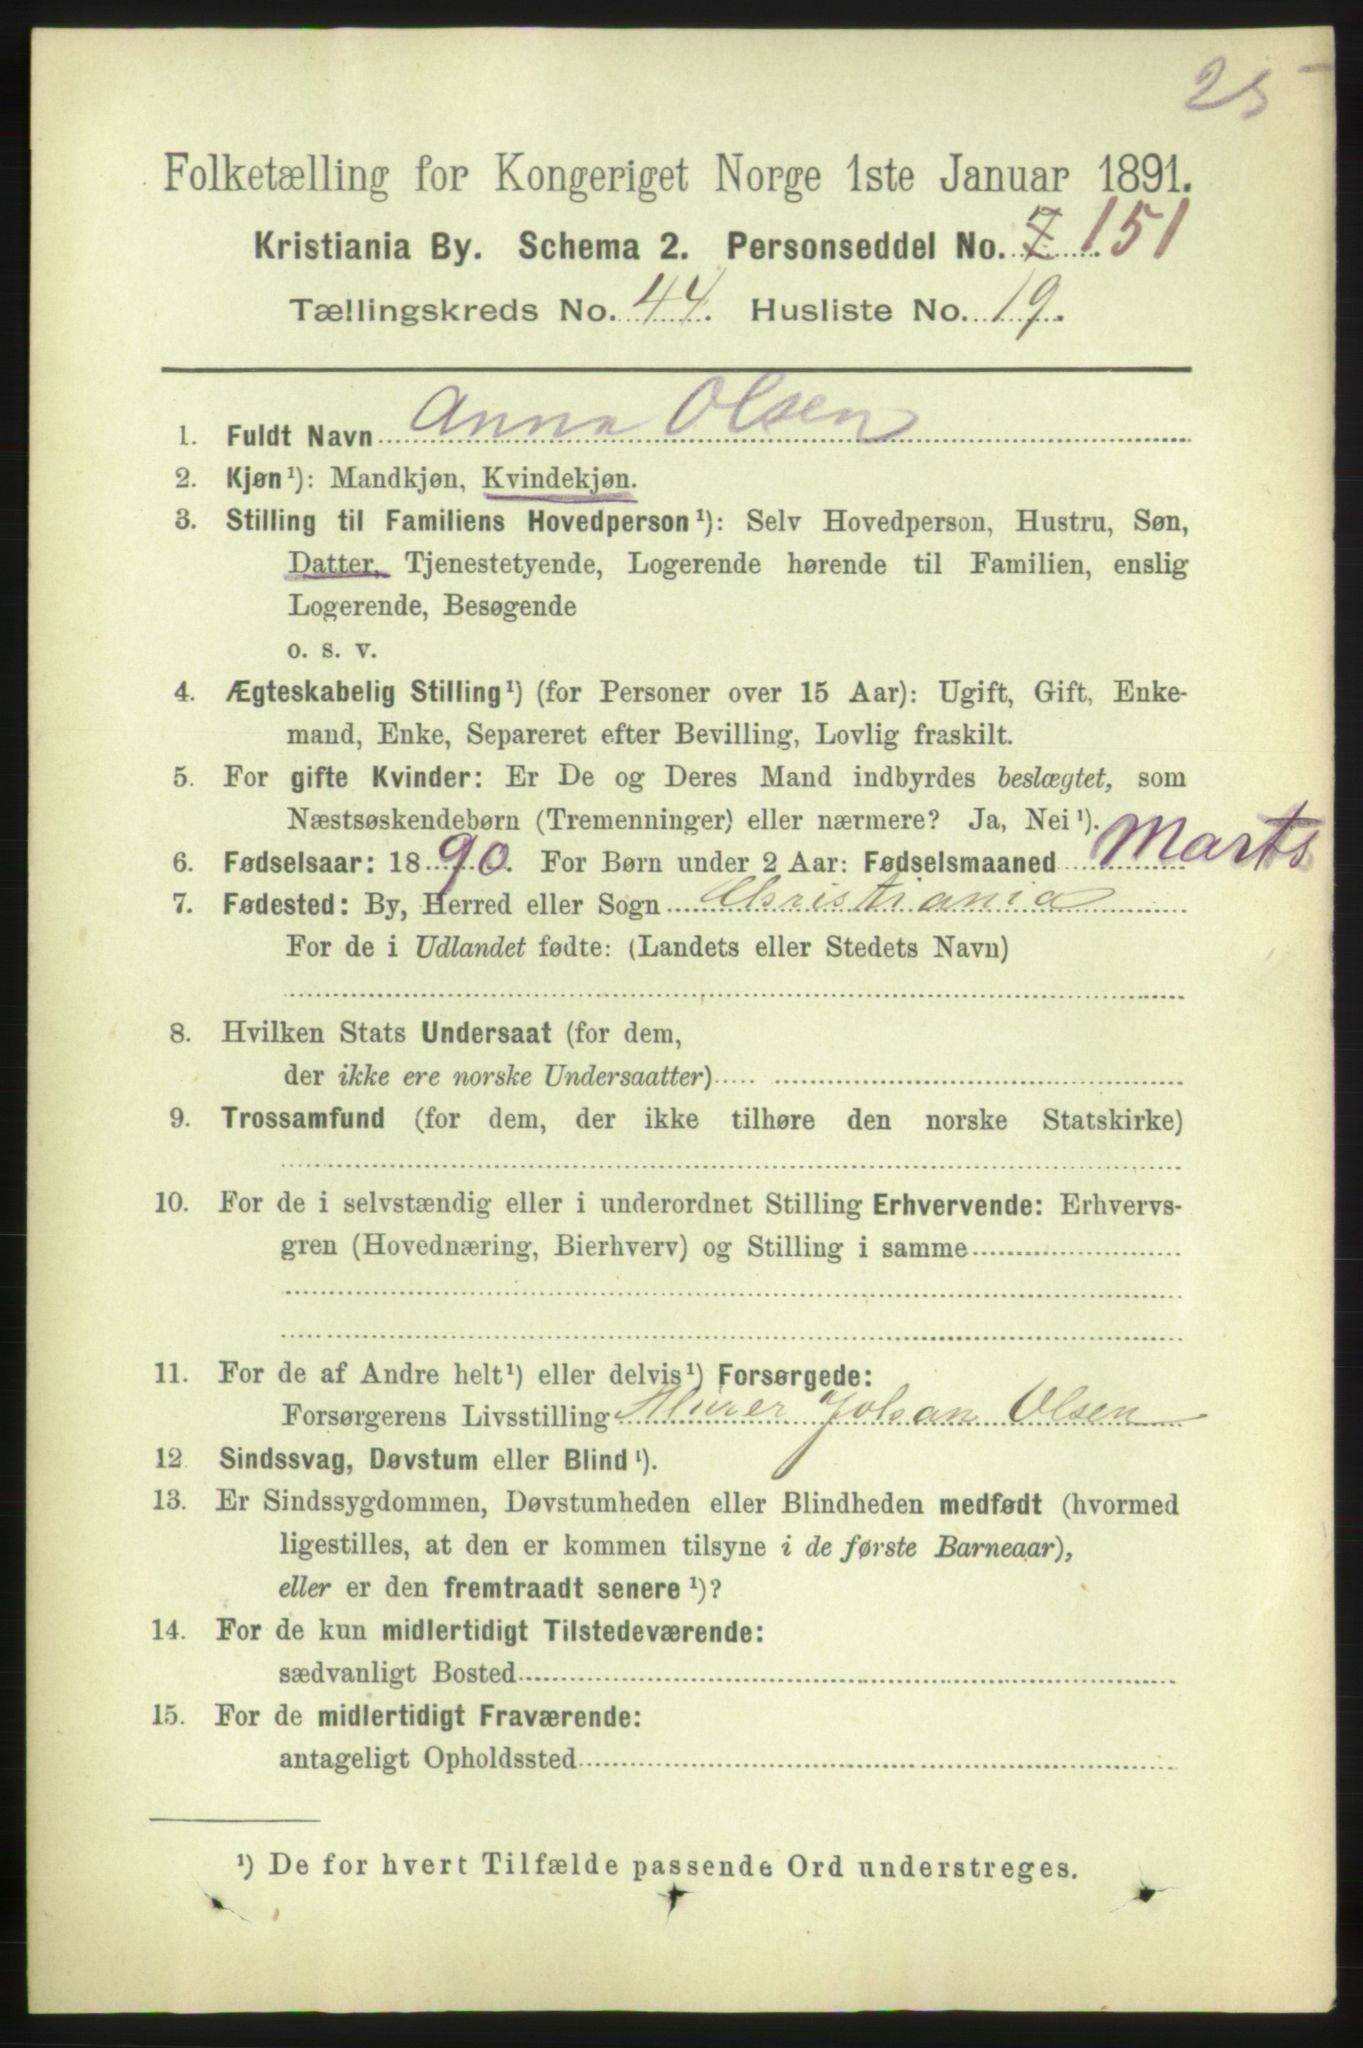 25
Folketælling for Kongeriget Norge 1ste Januar 1891.
Kristiania By. Schema 2. Personseddel No. 7 151
Tællingskreds No. 44. Husliste No. 19.
1. Fuldt Navn Anna Olsen
2. Kjøn¹): Mandkjøn, Kvindekjøn.
3. Stilling til Familiens Hovedperson¹): Selv Hovedperson, Hustru, Søn,
Datter, Tjenestetyende, Logerende hørende til Familien, enslig
Logerende, Besøgende
o. s. v.
4. Ægteskabelig Stilling¹) (for Personer over 15 Aar): Ugift, Gift, Enke-
mand, Enke, Separeret efter Bevilling, Lovlig fraskilt.
5. For gifte Kvinder: Er De og Deres Mand indbyrdes beslægtet, som
Næstsøskendebørn (Tremenninger) eller nærmere? Ja, Nei¹).
6. Fødselsaar: 1890. For Børn under 2 Aar: Fødselsmaaned Marts
7. Fødested: By, Herred eller Sogn Christiania
For de i Udlandet fødte: (Landets eller Stedets Navn)
8. Hvilken Stats Undersaat (for dem,
der ikke ere norske Undersaatter)
9. Trossamfund (for dem, der ikke tilhøre den norske Statskirke)
10. For de i selvstændig eller i underordnet Stilling Erhvervende: Erhvervs-
gren (Hovednæring, Bierhverv) og Stilling i samme
11. For de af Andre helt¹) eller delvis¹) Forsørgede:
Forsørgerens Livsstilling Murer Johan Olsen
12 Sindssvag, Døvstum eller Blind¹).
13. Er Sindssygdommen, Døvstumheden eller Blindheden medfødt (hvormed
ligestilles, at den er kommen tilsyne i de første Barneaar),
eller er den fremtraadt senere¹)?
14. For de kun midlertidigt Tilstedeværende:
sædvanligt Bosted
15. For de midlertidigt Fraværende:
antageligt Opholdssted
¹) De for hvert Tilfælde passende Ord understreges.